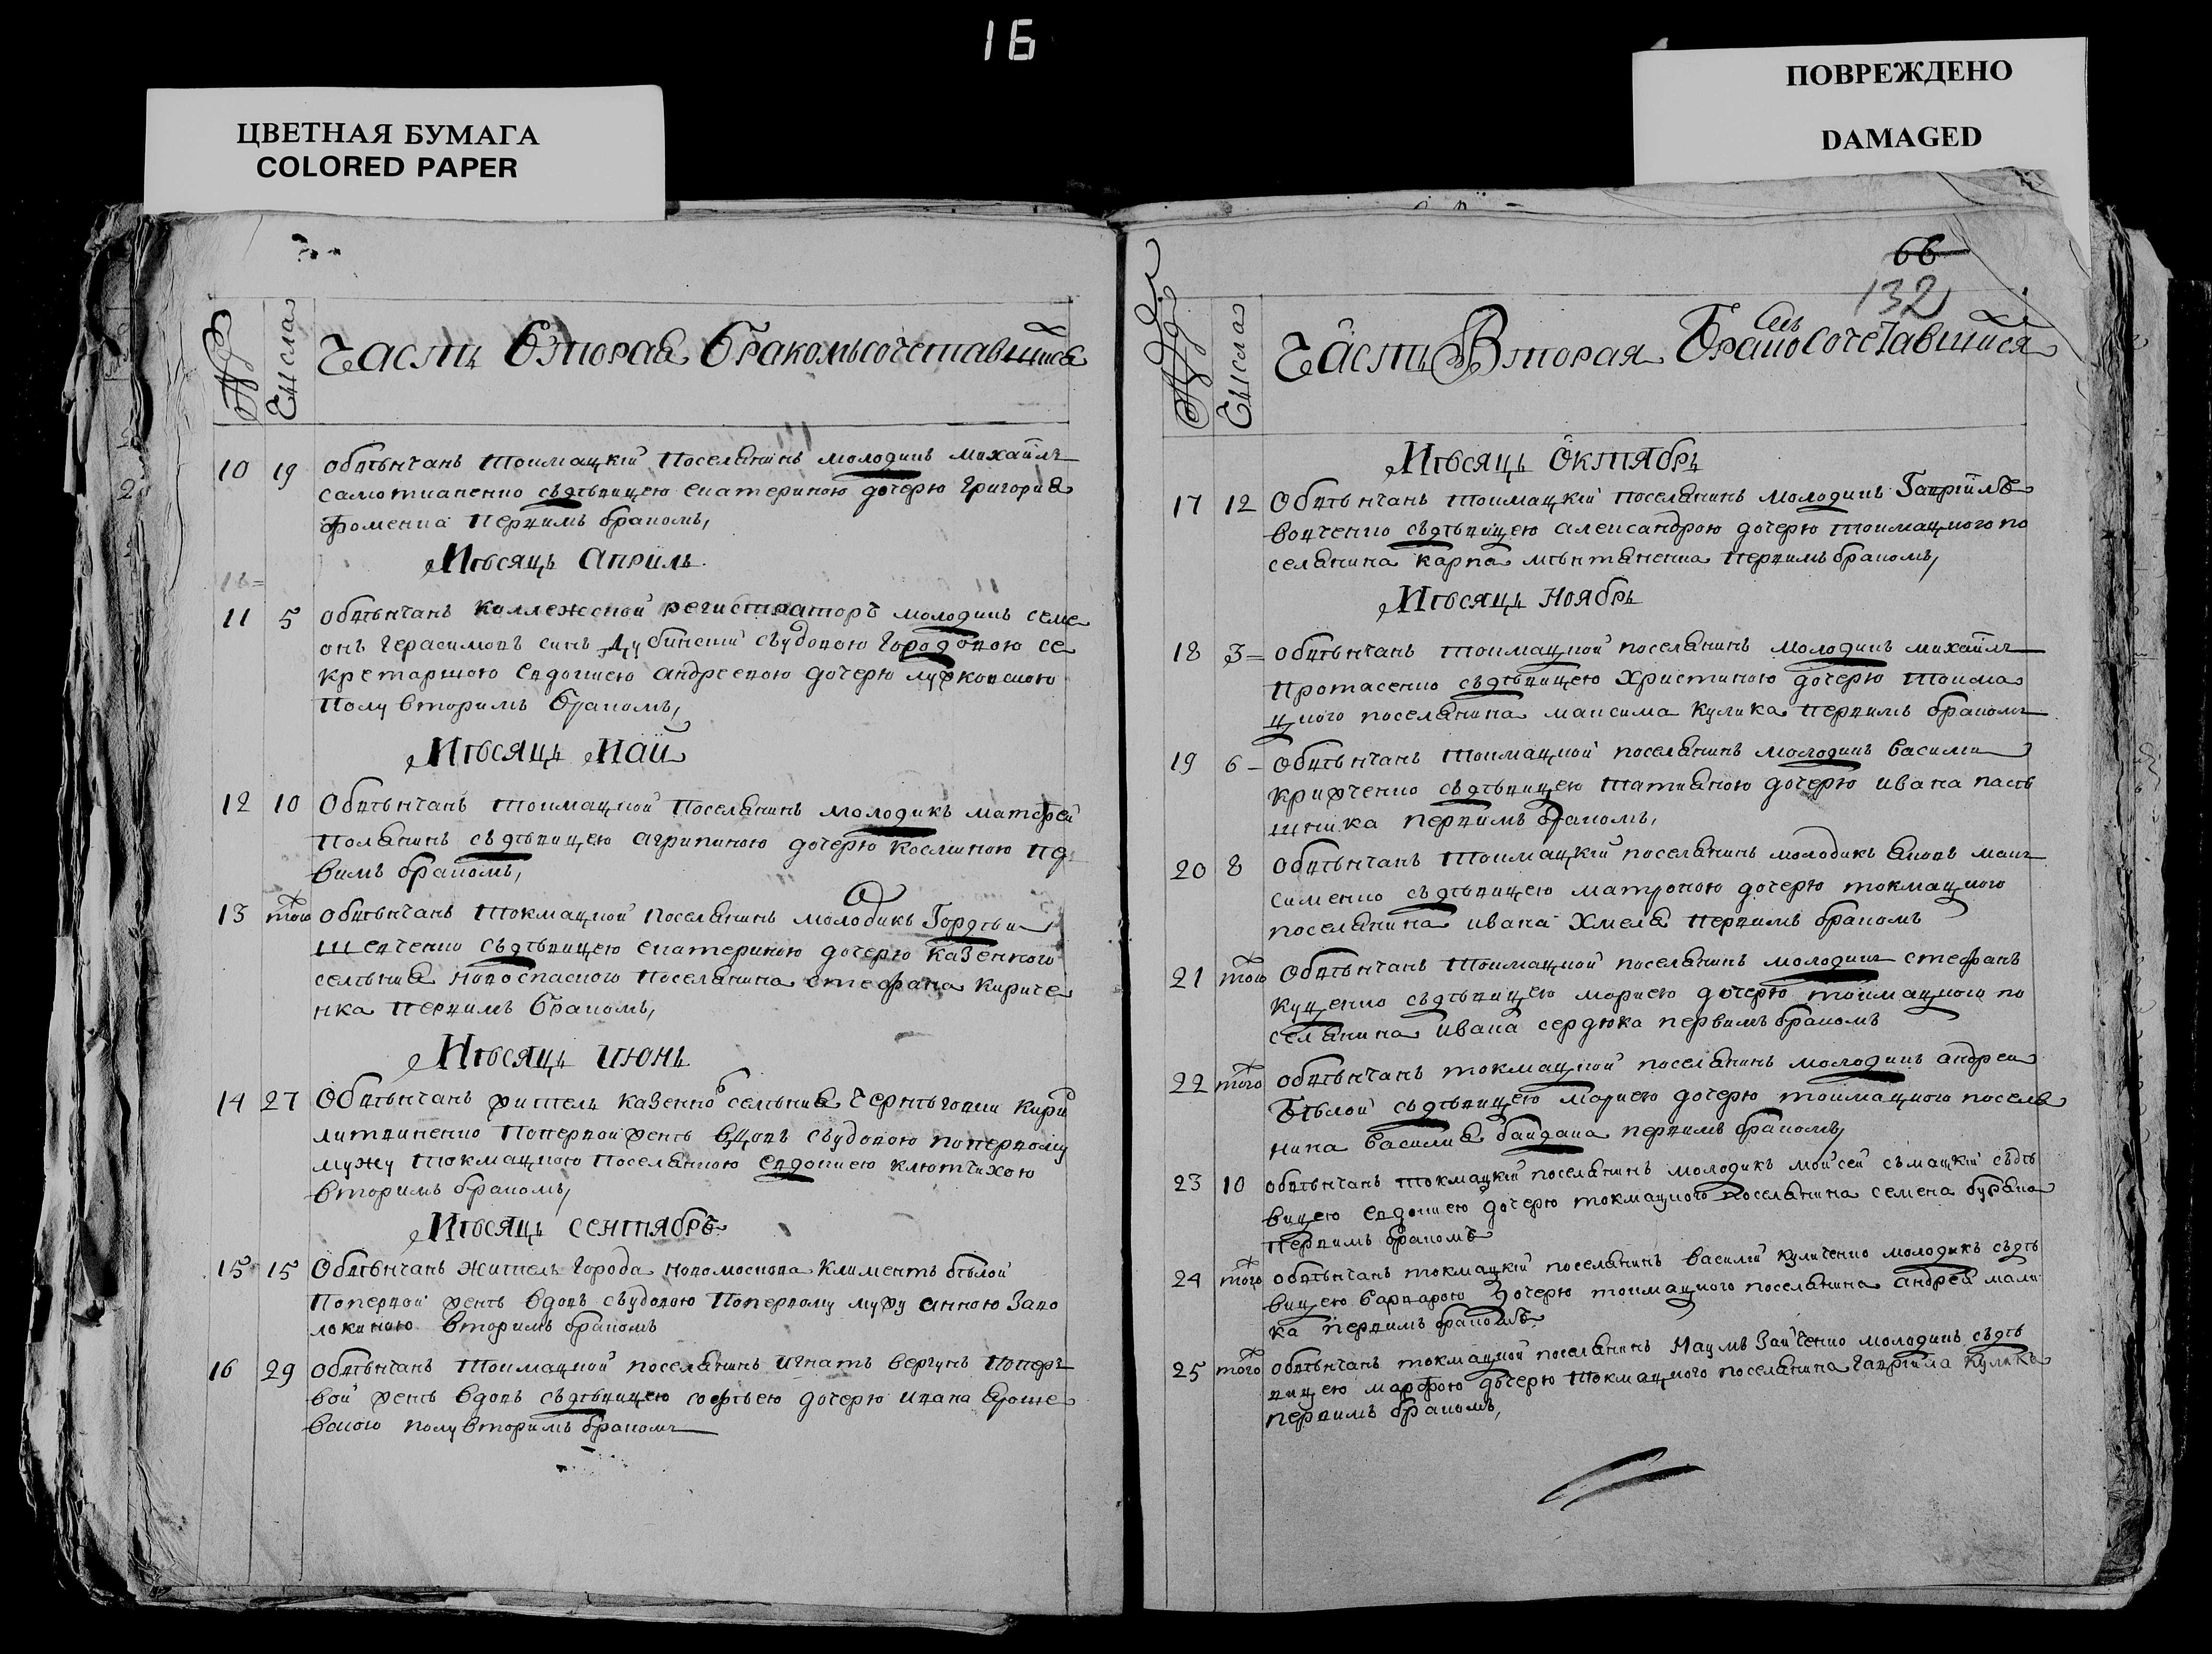 16
ЦВЕТНАЯ БУМАГА
COLORED PAPER
ПОВРЕЖДЕНО
DAMAGED
Числа
Часть Вторая Бракомъсочетавшися
10 19 обвѣнчанъ токмацкій поселянинъ молодикъ михайлъ
самоткаченко съ дѣвицею екатериною дочерю григория
фоменка первимъ бракомъ,
Мѣсяцъ Априль
11 5 обвѣнчанъ коллежской регистраторъ молодикъ семе
онъ герасимовъ синъ дубинскій съудовою городовою се
кретаршою евдокиею андреевою дочерю
полу вторимъ бракомъ,
Мѣсяцъ Май
12 10 Обвѣнчанъ токмацкой поселянинъ молодикъ матфей
полянинъ съ дѣвицею агрипиною дочерю
вимъ бракомъ,
13 того обвѣнчанъ токмацкой поселянинъ молодикъ Гордѣи
шевченко съ дѣвицею екатериною дочерю казенного
селѣния новоспаского поселянина стефана кириче
нка первимъ бракомъ,
Мѣсяцъ июнь
14 27 Обвѣнчанъ житель казенно селѣния чернѣговки кири
литвиненко поперво​й женѣ вдовъ съудовою попервому
мужу токмацкою поселянкою евдокиею клютчихою
вторимъ бракомъ,
Мѣсяцъ сентябрь
15 15 Обвѣнчанъ житель города новомосковска климентъ бѣлой
попервой женѣ вдовъ съудовою попервому мужу анною
вторимъ бракомъ
16 29 обвѣнчанъ токмацкой поселянинъ игнатъ вергунъ попер
вой женѣ вдовъ съ дѣвицею софѣею дочерю ивана яроше
вского полувторимъ бракомъ
66
132
Числа
Часть Вторая Бракосочетавшийся
Мѣсяцъ Октябрь
17 12 Обвѣнчанъ токмацкій поселянинъ молодикъ Гавріилъ
вовченко съ дѣвицею александрою дочерю токмацкого по
селянина карпа первимъ бракомъ,
Мѣсяцъ Ноябрь
18 3 обвѣнчанъ токмацкой поселянинъ молодикъ михайлъ
протасенко съ дѣвицею христиною дочерю токма
цкого поселянина максима кулика первимъ бракомъ
19 6 Обвѣнчанъ токмацкой поселянинъ молодикъ василий
кривченко съ дѣвицею татияною дочерю ивана пасѣ
шника первимъ бракомъ,
20 8 Обвѣнчанъ токмацкій поселянинъ молодикъ яковъ мак
сименко съ дѣвицею матроною дочерю токмацкого
поселянина ивана хмеля первимъ бракомъ
21 того Обвѣнчанъ токмацкой поселянинъ молодикъ стефанъ
куценко съ дѣвицею мариею дочерю токмацкого по
селянина ивана сердюка первимъ бракомъ
22 того обвѣнчанъ токмацкой поселянинъ молодикъ андреи
бѣлой съ дѣвицею мариею дочерю токмацкого поселя
нина василия байдака первимъ бракомъ,
23 10 обвѣнчанъ токмацкій поселянинъ молодикъ мойсей сѣмацкій съдѣ
вицею евдокиею дочерю токмацкого поселянина семена буряка
первимъ бракомъ
24 того обвѣнчанъ токмацкій поселянинъ василий куличенко молодикъ съдѣ
вицею варварою дочерю токмацкого поселянина андрея мали
ка первимъ бракомъ
25 того обвѣнчанъ токмацкой поселянинъ Наумъ Заиченко молодикъ съдѣ
вицею марфою дочерю токмацкого поселянина гавріила кулика
первимъ бракомъ,